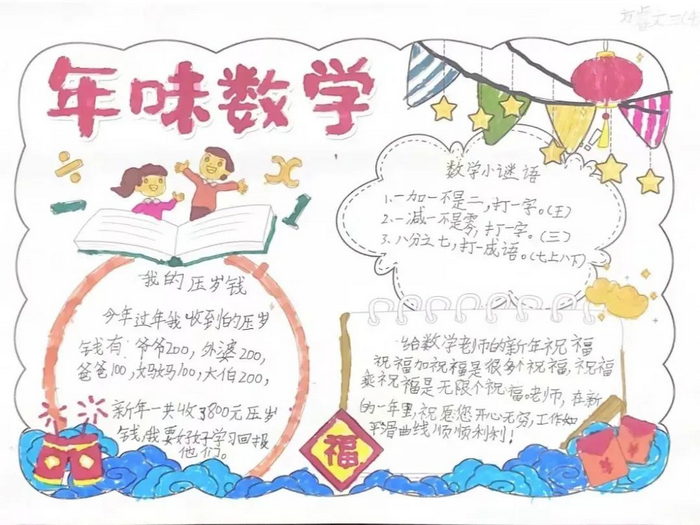 年味数学
数学小谜语
1.一加一不是二,打一字。(王)
2.一减一不是零,打一字。(三)
3.八分之七,打一成语。(七上八下)
我的压岁钱
今年过年我收到的压岁
钱有:爷爷200,外婆200,
爸爸100,妈妈100,大伯200,
新年一共收了800元压岁
钱,我要好好学习回报
他们。
给数学老师的新年祝福
祝福加祝福是很多祝福,祝福
乘祝福是无限个祝福。老师,在新
的一年里,祝愿您开心无穷,工作如
平滑曲线,顺顺利利!
福